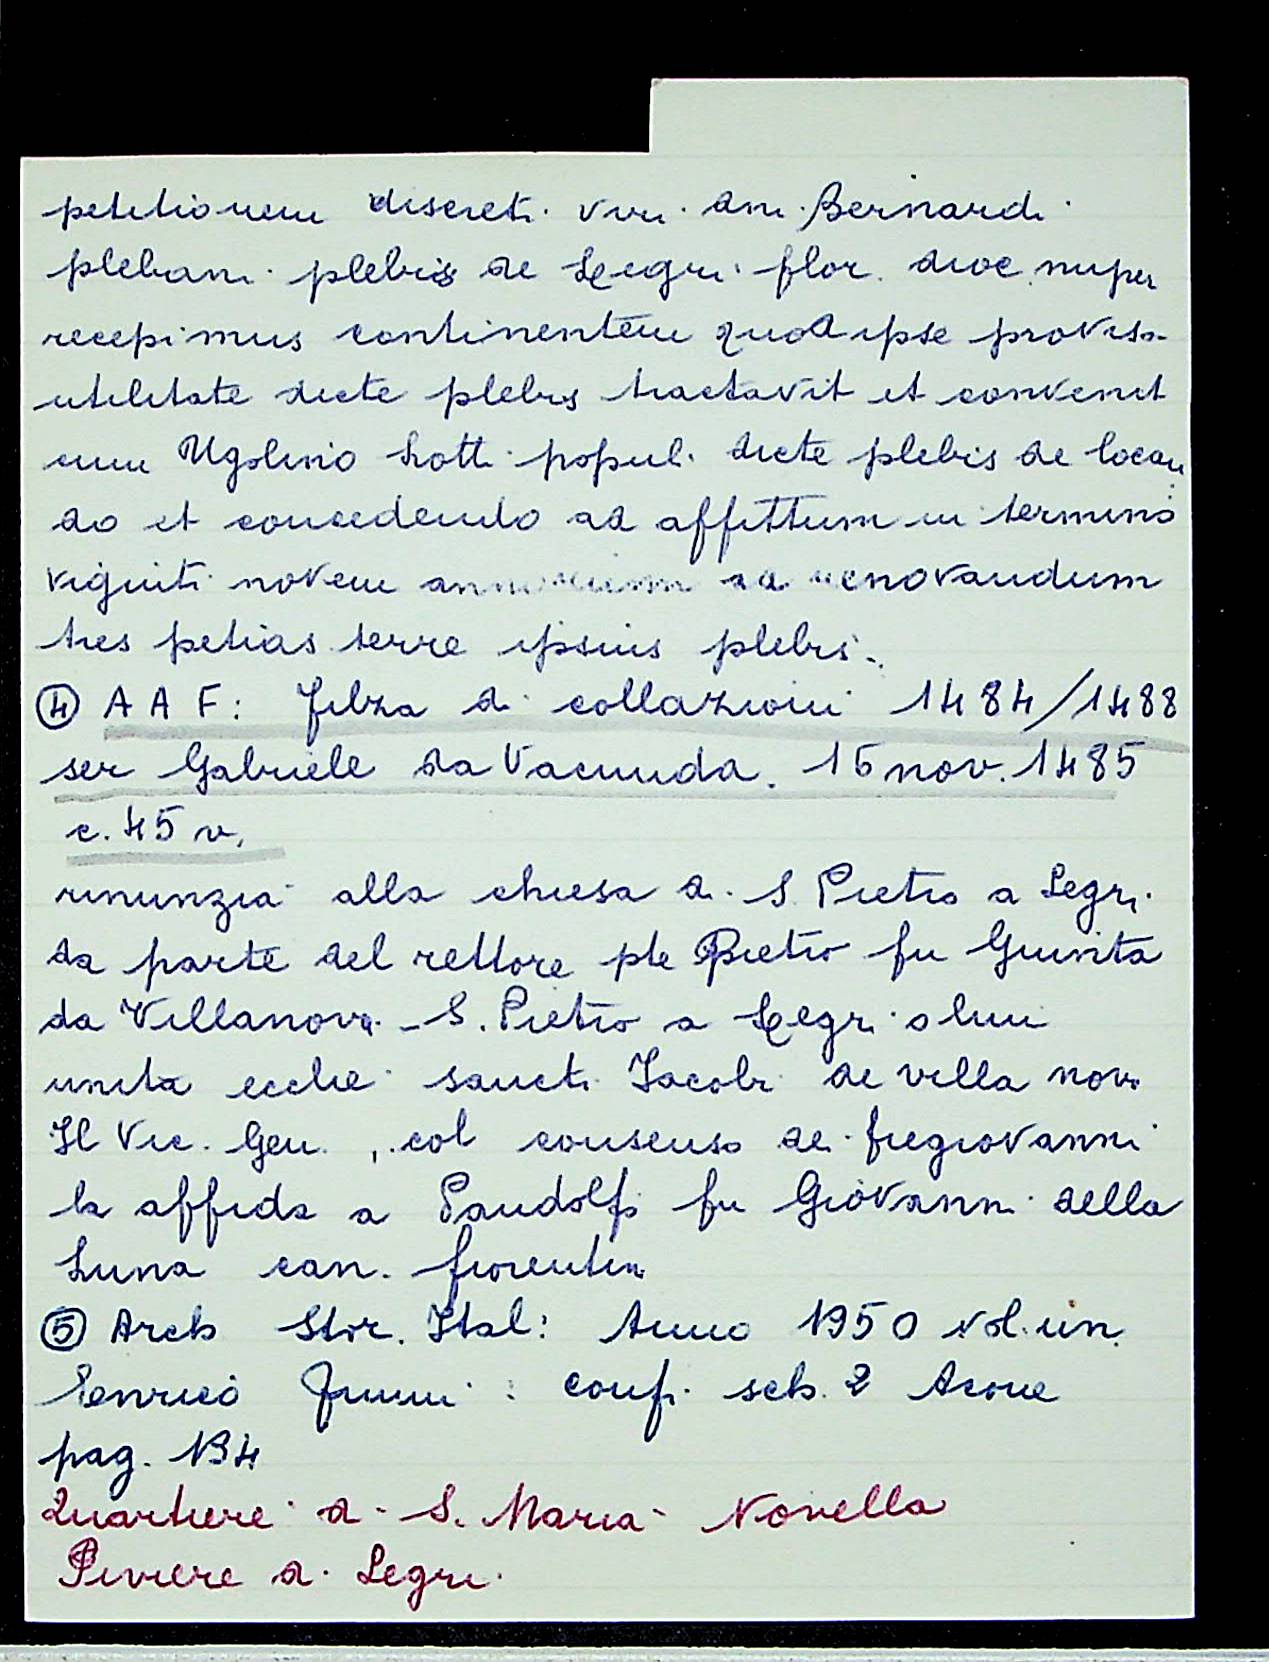 petitionem discreti viri dni Bernardi
plebani plebis de Legri flor. dioc. nuper
recepimus continentem quod ipse provisa
utilitate dicte plebis tractavit et convenit
cum Ugolino Lotti populi dicte plebis de locan
do et concedendo ad affittum in termino
viginti novem ad renovandum
tres petias terre ipsius plebis.
④ A A F: Filza di collazioni 1484/1488
ser Gabriele da Vacunda. 15 nov. 1485
c. 45 v.
rinunzia alla chiesa di S. Pietro a Legri
da parte del rettore pte Pietro fu Giunta
da Villanova - S. Pietro a Legri olim
unita ecclie sancti Jacobi de villa nova
Il Vic. Gen., col consenso de fregiovanni
la affida a Pandolfo fu Giovanni della
Luna can. fiorentino
⑤ Arch Stor. Ital: Anno 1950 vol. un.
Enrico Fiumi: conf. sch. 2 Acone
pag. 134
Quartiere di S. Maria Novella
Piviere di Legri